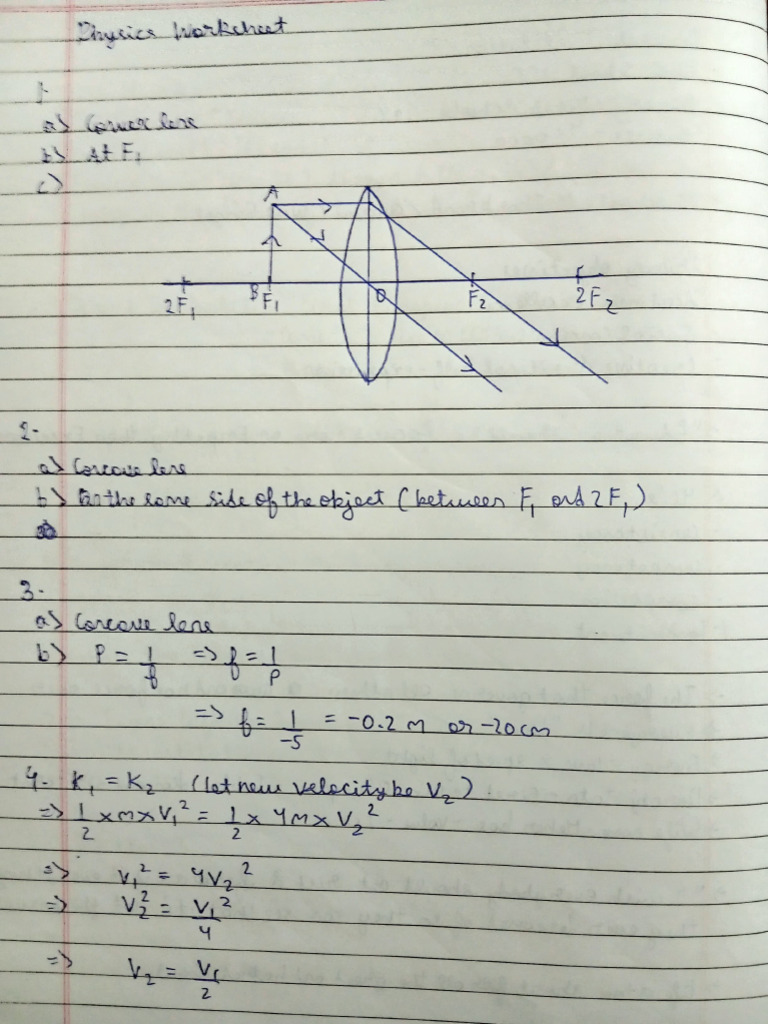 Physics Worksheet
1-
a) Convex lens
b) At F₁
c)
A
2F₁ B F₁ O F₂ 2F₂
2-
a) Concave lens
b) On the same side of the object (between F₁ and 2F₁)
3-
a) Concave lens
b) P = 1/f => f = 1/P
=> f = 1/-5 = -0.2 m or -20 cm
4- K₁ = K₂ (let new velocity be V₂)
=> 1/2 × m × V₁² = 1/2 × 4m × V₂²
=> V₁² = 4V₂²
=> V₂² = V₁²/4
=> V₂ = V₁/2